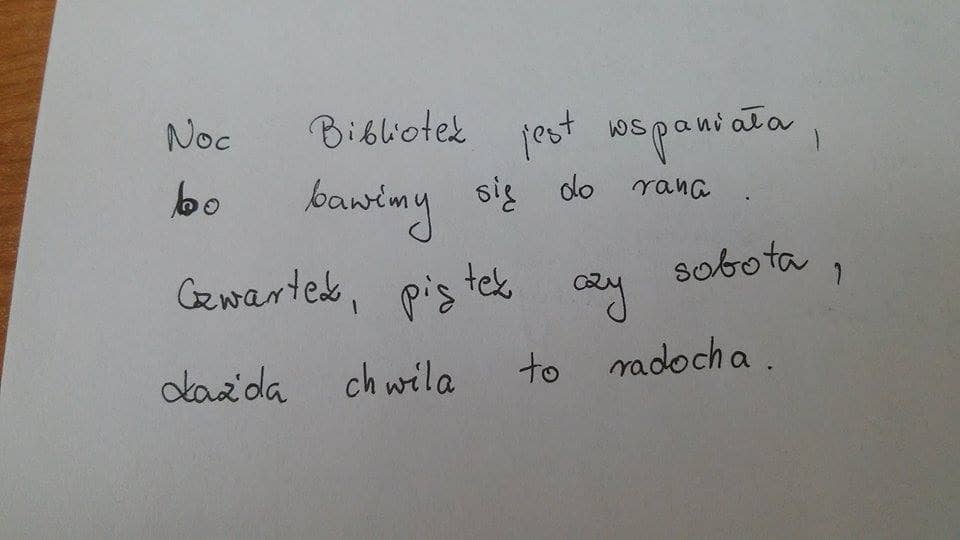 Noc Bibliotek jest wspaniała,
bo bawimy się do rana.
Czwartek, piątek czy sobota,
każda chwila to radocha.